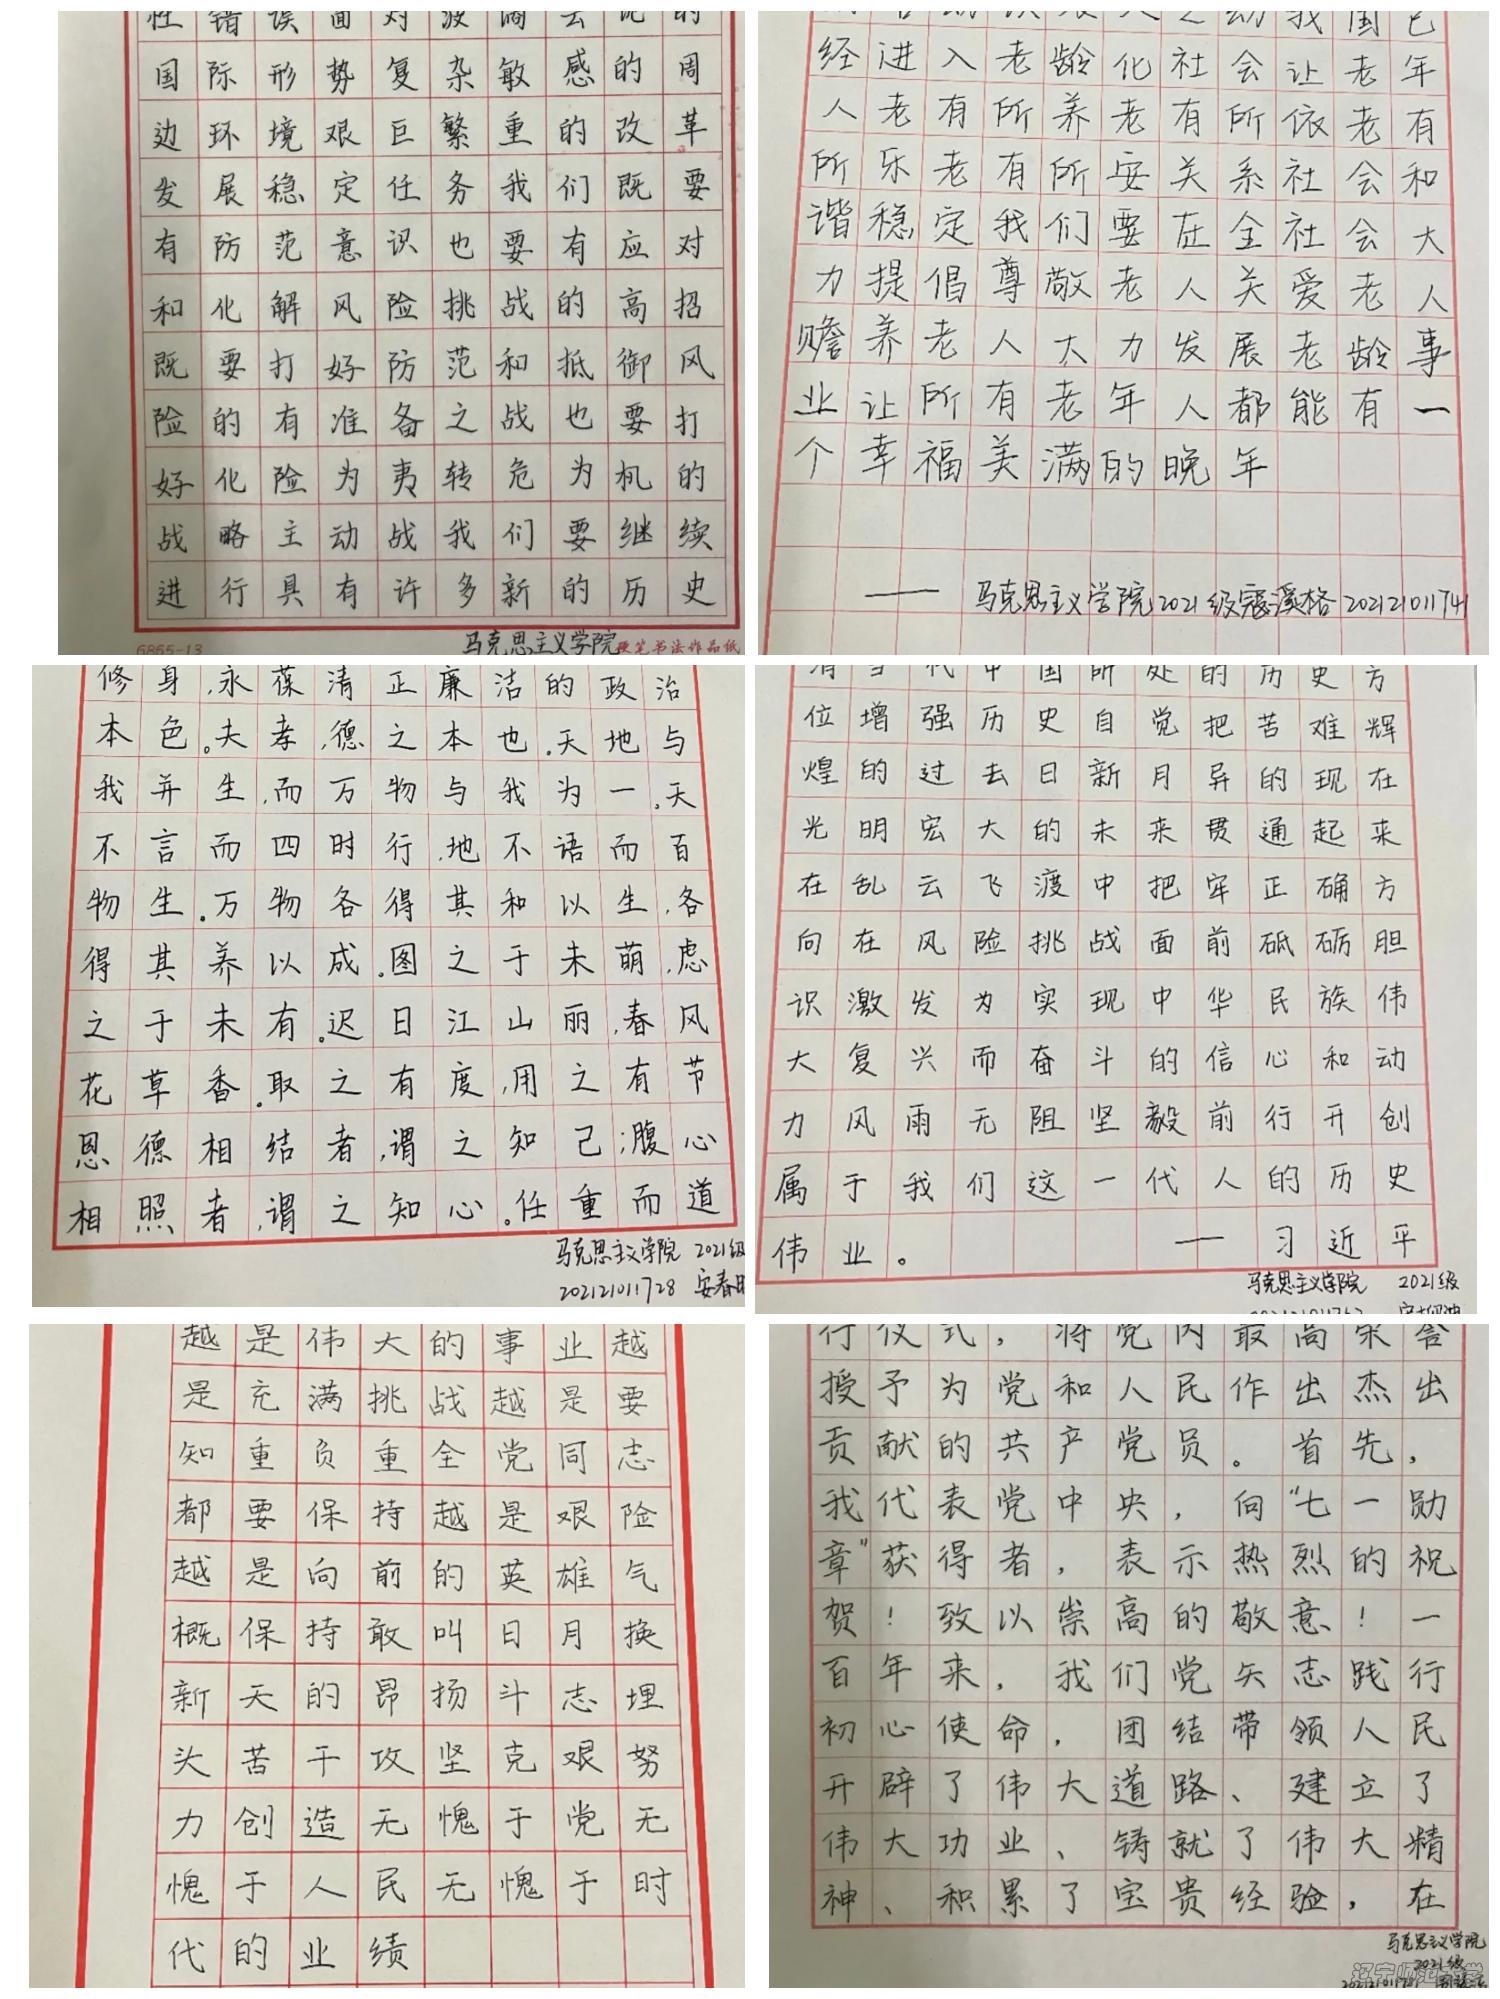 国际形势复杂敏感的周
边环境艰巨繁重的改革
发展稳定任务我们既要
有防范意识也要有应对
和化解风险挑战的高招
既要打好防范和抵御风
险的有准备之战也要打
好化险为夷转危为机的
战略主动战我们要继续
进行具有许多新的历史
6865-13
马克思主义学院
硬笔书法作品纸
经进入老龄化社会让老年
人老有所养老有所依老有
所乐老有所安关系社会和
谐稳定我们要在全社会大
力提倡尊敬老人关爱老人
赡养老人大力发展老龄事
业让所有老年人都能有一
个幸福美满的晚年
——马克思主义学院2021级寇溪格202121011741
修身,永葆清正廉洁的政治
本色。夫孝,德之本也。天地与
我并生,而万物与我为一。天
不言而四时行,地不语而百
物生。万物各得其和以生,各
得其养以成。图之于未萌,虑
之于未有。迟日江山丽,春风
花草香。取之有度,用之有节
恩德相结者,谓之知己;腹心
相照者,谓之知心。任重而道
马克思主义学院 2021级
202121011728 安春
清当代中国所处的历史方
位增强历史自觉把苦难辉
煌的过去日新月异的现在
光明宏大的未来贯通起来
在乱云飞渡中把牢正确方
向在风险挑战面前砥砺胆
识激发为实现中华民族伟
大复兴而奋斗的信心和动
力风雨无阻坚毅前行开创
属于我们这一代人的历史
伟业。——习近平
马克思主义学院 2021级
越是伟大的事业越
是充满挑战越是要
知重负重全党同志
都要保持越是艰险
越是向前的英雄气
概保持敢叫日月换
新天的昂扬斗志埋
头苦干攻坚克艰努
力创造无愧于党无
愧于人民无愧于时
代的业绩
行仪式，将党内最高荣誉
授予为党和人民作出杰出
贡献的共产党员。首先，
我代表党中央，向“七一勋
章”获得者，表示热烈的祝
贺！致以崇高的敬意！一
百年来，我们党矢志践行
初心使命，团结带领人民
开辟了伟大道路、建立了
伟大功业、铸就了伟大精
神、积累了宝贵经验，在
马克思主义学院
2021级
辽宁师范大学